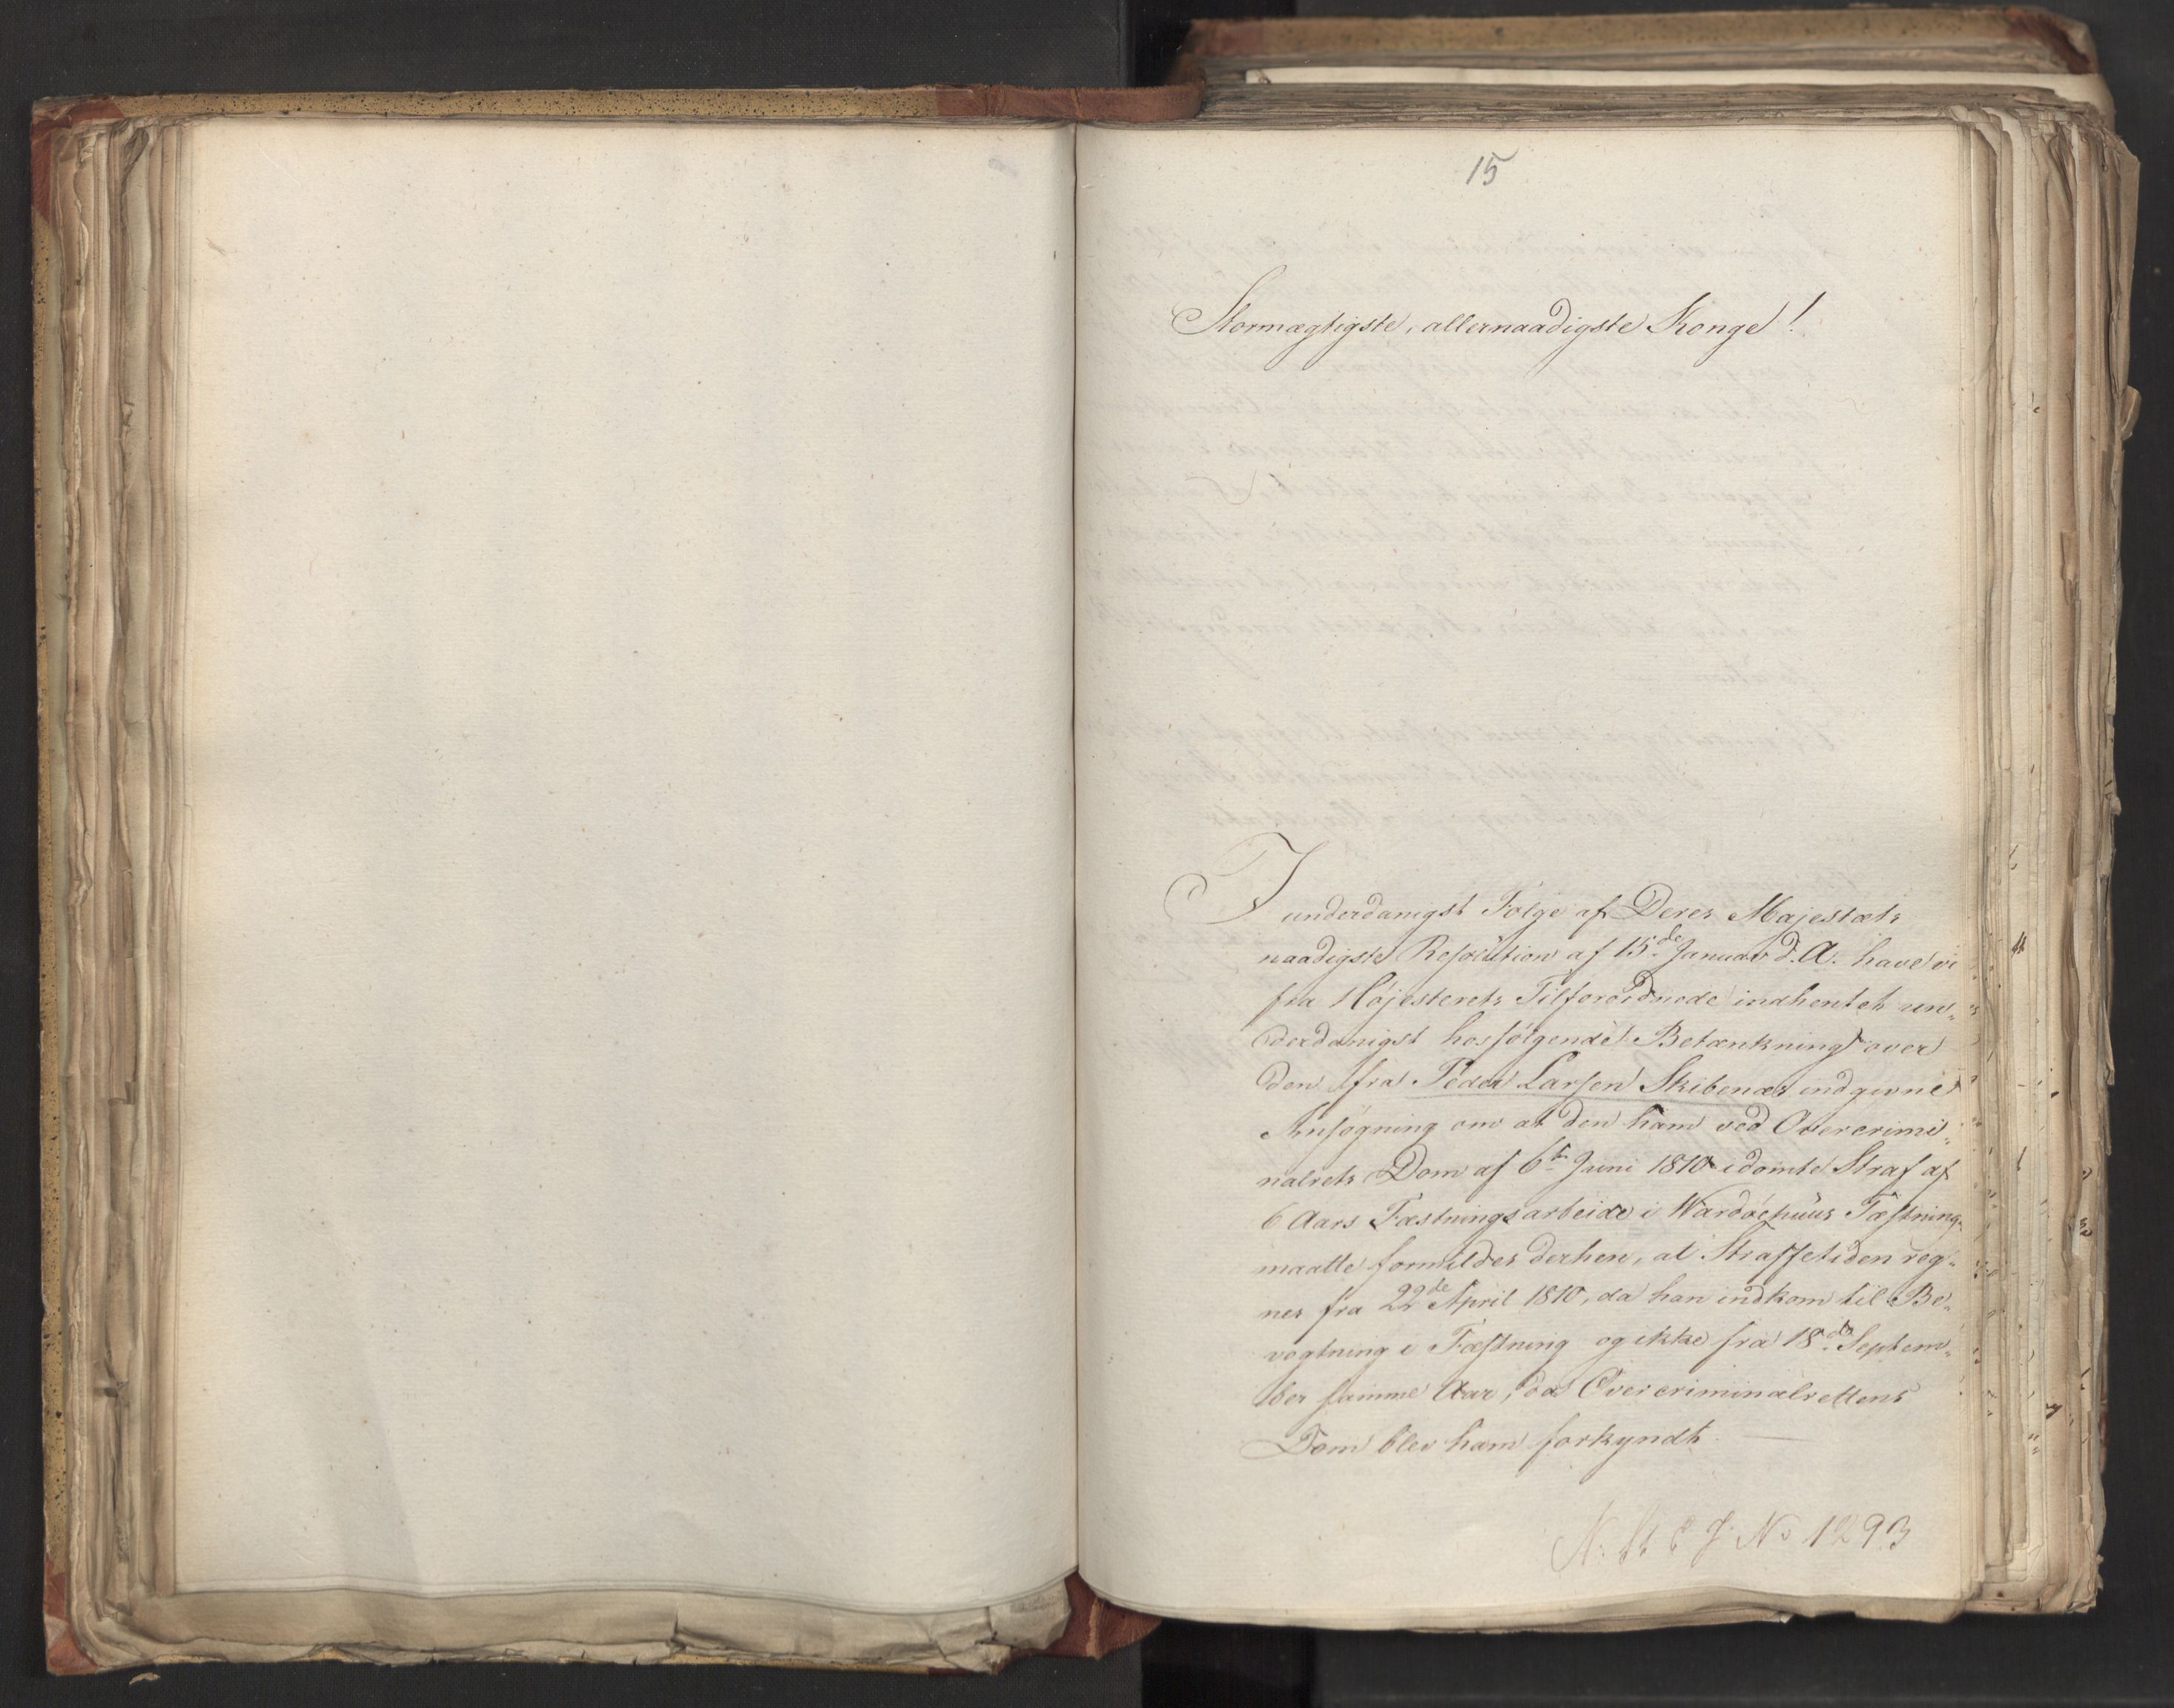 15
Stormægtigste, allernaadigste Konge!
I underdanigst Følge af Deres Majestæts
naadigste Resolution af 15de Januar d. A. have vi
fra Højesterets Tilforordnede indhentet un„
derdanigst hosfølgende Betænkning over
den fra Peder Larsen Skibenæs indgivne
Ansøgning om at den ham ved Overcrimi„
nalrets Dom af 6te Juni 1810 idømte Straf af
6 Aars Fæstningsarbeide i Wardøehuus Fæstning
maatte formildes derhen, at Straffetiden reg„
nes fra 22de April 1810, da han indkom til Be„
vogtning i Fæstning og ikke fra 18de Septem„
ber samme Aar, da Overcriminalrettens
Dom blev ham forkyndt. —
J No 1293